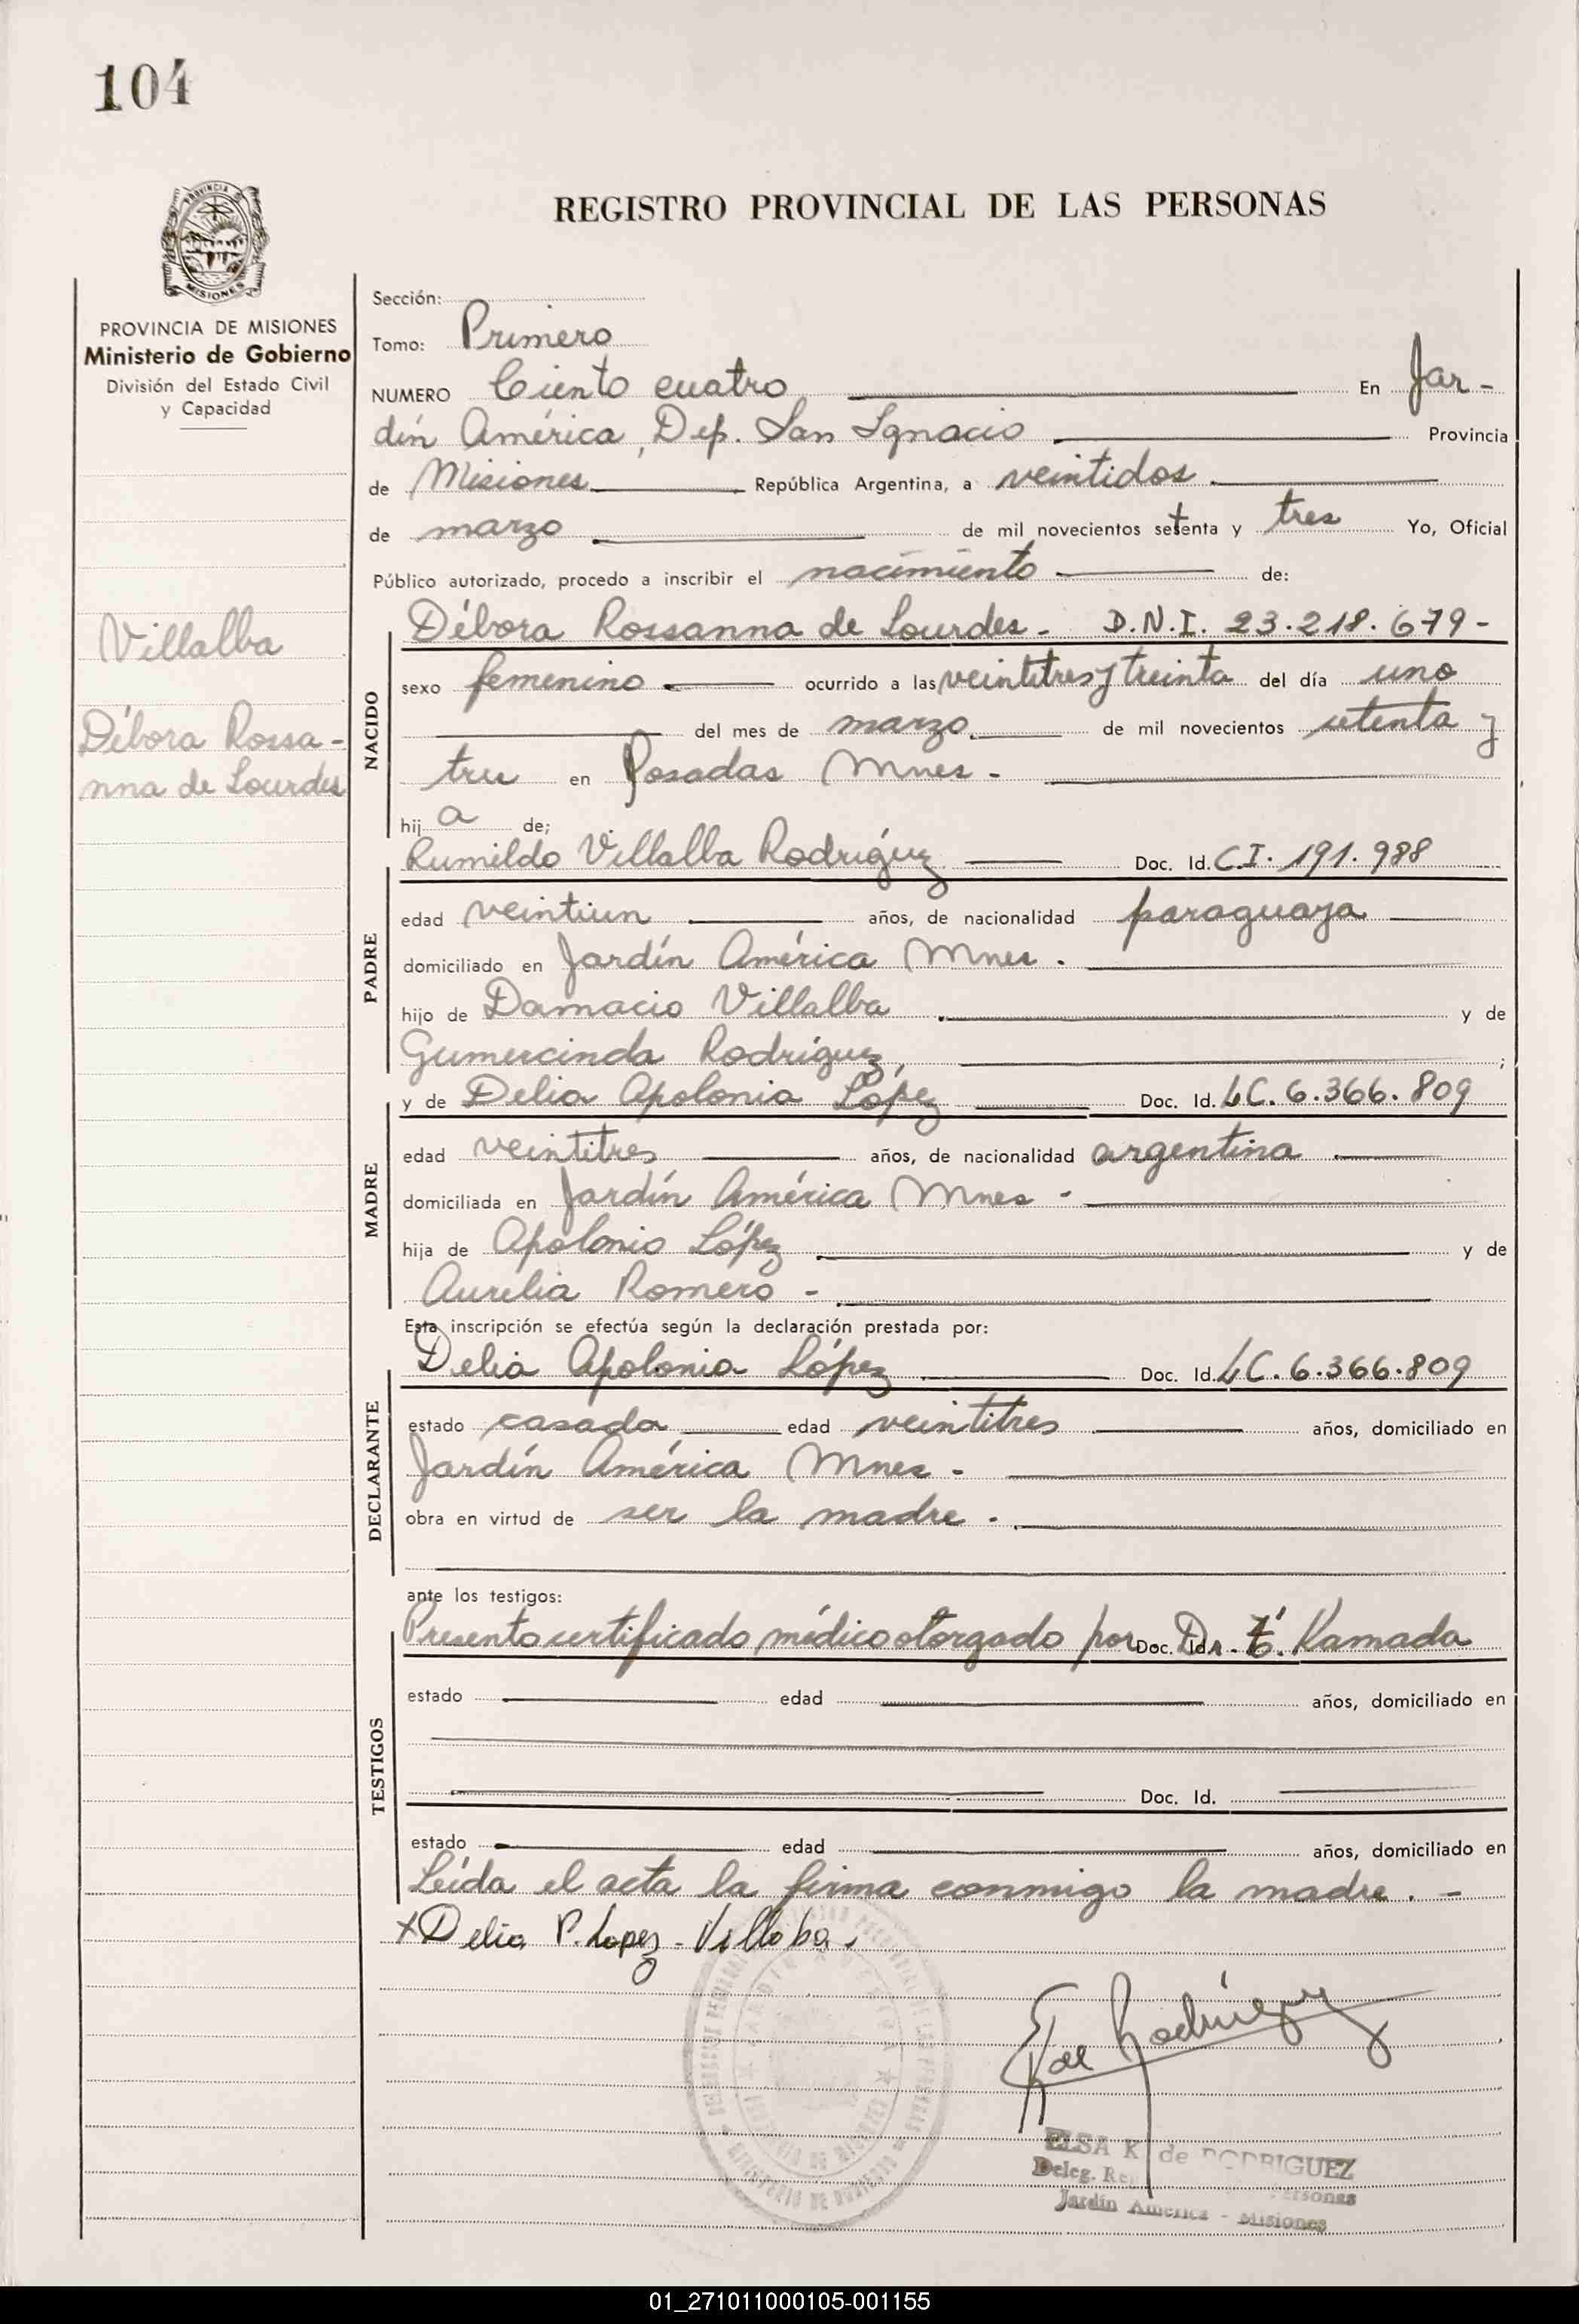 104
REGISTRO PROVINCIAL DE LAS PERSONAS
PROVINCIA DE MISIONES
Ministerio de Gobierno
División del Estado Civil
y Capacidad
Villalba
Débora Rossa-
nna de Lourdes
Sección:
Tomo: Primero
NUMERO Ciento cuatro En Jar-
dín América, Dep. San Ignacio Provincia
de Misiones República Argentina, a veintidos
de marzo de mil novecientos setenta y tres Yo, Oficial
Público autorizado, procedo a inscribir el nacimiento de:
NACIDO
Débora Rossanna de Lourdes - D.N.I. 23.218.679-
sexo femenino ocurrido a las veintitres y treinta del día uno
del mes de marzo de mil novecientos setenta y
tres en Posadas Mnes -
hij a de;
PADRE
Rumildo Villalba Rodríguez Doc. Id. C.I. 191.988
edad veintiun años, de nacionalidad paraguaya
domiciliado en Jardín América Mnes.
hijo de Damacio Villalba y de
Gumercinda Rodríguez ;
MADRE
y de Delia Apolonia López Doc. Id. LC. 6.366.809
edad veintitres años, de nacionalidad argentina
domiciliada en Jardín América Mnes -
hija de Apolonio López y de
Aurelia Romero -
Esta inscripción se efectúa según la declaración prestada por:
DECLARANTE
Delia Apolonia López Doc. Id. LC. 6.366.809
estado casada edad veintitres años, domiciliado en
Jardín América Mnes -
obra en virtud de ser la madre.
ante los testigos:
TESTIGOS
Presento certificado médico otorgado por Doc. Id. Dr. E. Kamada
estado edad años, domiciliado en
Doc. Id.
estado edad años, domiciliado en
Leída el acta la firma conmigo la madre. -
x Delia P. Lopez - Villalba.
E K de Rodríguez
ELSA K de RODRIGUEZ
Deleg. Reg. Personas
Jardín América - Misiones
01_271011000105-001155